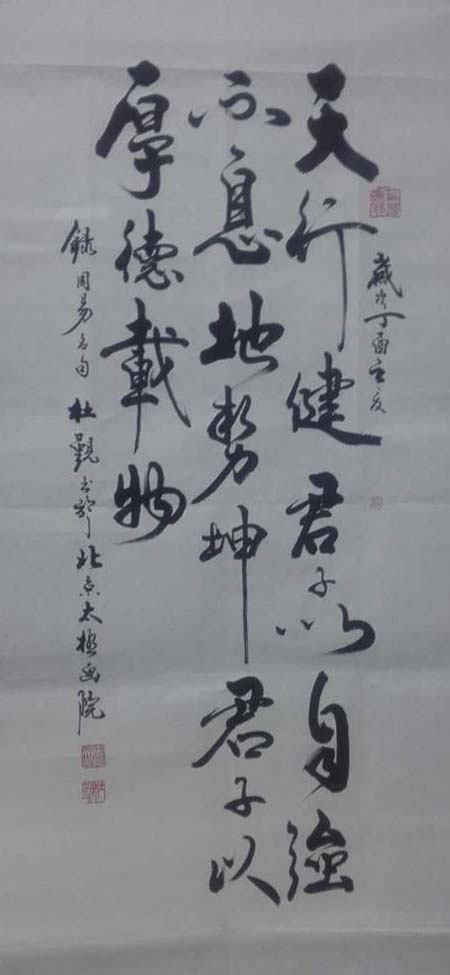 歲次丁酉之夏
天行健君子以自強
不息地勢坤君子以
厚德載物
錄周易名句杜觀書於北京太極畫院